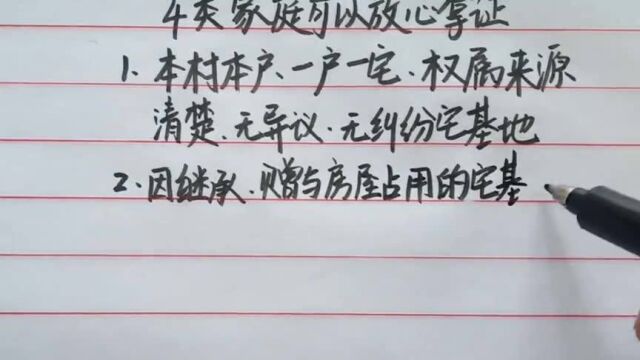 4类家庭可以放心拿证
1.本村本户、一户一宅、权属来源
清楚、无异议、无纠纷宅基地
2.因继承、赠与房屋占用的宅基